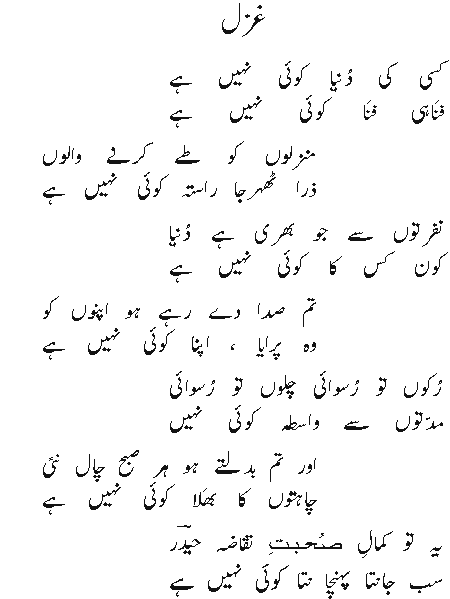 غزل
کسی کی دُنیا کوئی نہیں ہے
فنَاہی فنَا کوئی نہیں ہے
منزلوں کو طے کرنے والوں
ذرا ٹھہرجا راستہ کوئی نہیں ہے
نفرتوں سے جو بھری ہے دُنیا
کون کس کا کوئی نہیں ہے
تم صدا دے رہے ہو اپنوں کو
وہ پرایا ، اپنا کوئی نہیں ہے
رُکوں تو رُسوائی چلوں تو رُسوائی
مدّتوں سے واسطہ کوئی نہیں
اور تم بدلتے ہو ہر صبح چال نئی
چاہتوں کا بھلا کوئی نہیں ہے
یہ تو کمالِ صُحبتِ تقاضہ حیدؔر
سب جانتا پہنچا کوئی نہیں ہے